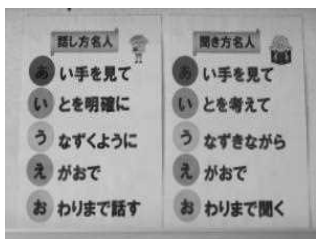 話し方名人
あい手を見て
いとを明確に
うなずくように
えがおで
おわりまで話す
聞き方名人
あい手を見て
いとを考えて
うなずきながら
えがおで
おわりまで聞く